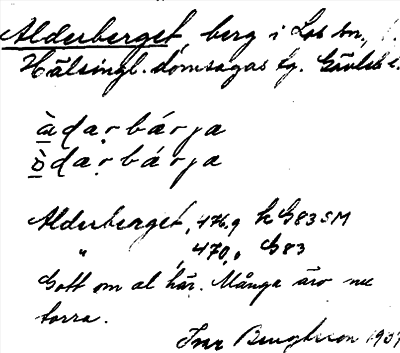 Alderberget, berg i Los sn,
Hälsingl. domsagas tg. Gävleb l.
àdạrbárja
òdạrbárja
Alderberget, 476,9 k G83SM
" 470,0 G83
Gott om al här. Många äro nu
torra.
Ivar Bengtsson 1937